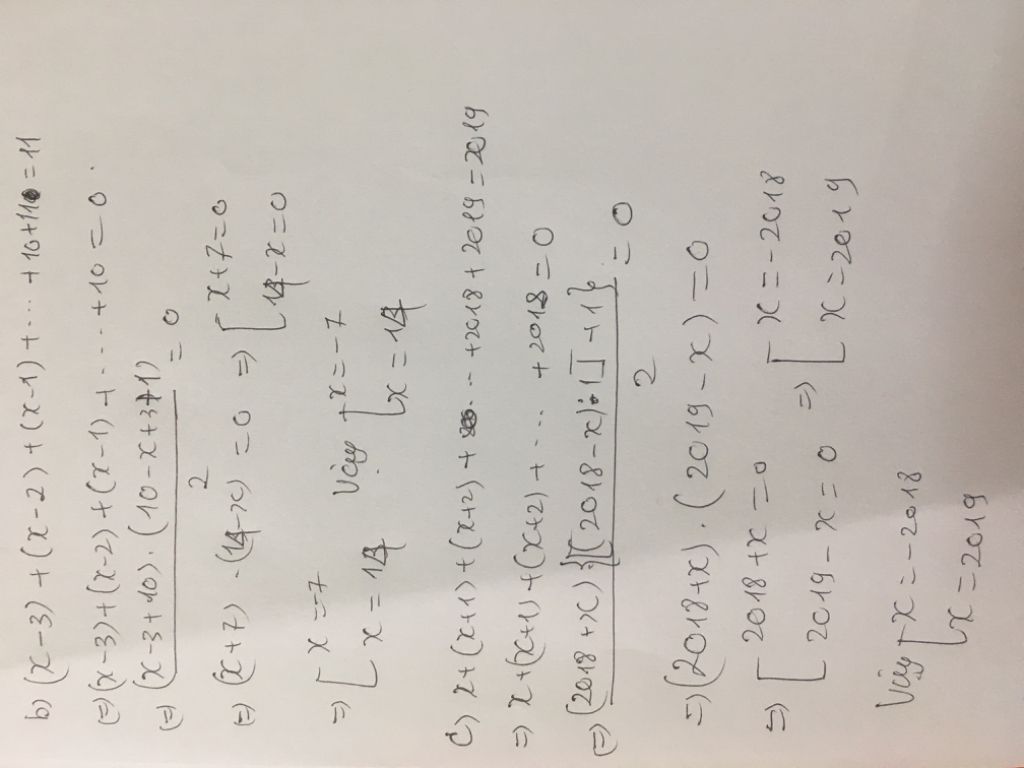 b) (x-3)+(x-2)+(x-1)+...+10+11=11
(=) (x-3)+(x-2)+(x-1)+...+10=0.
(=) (x-3+10).(10-x+3+1) / 2 = 0
(=) (x+7).(14-x)=0 => [ x+7=0
14-x=0
=> [ x=-7
x=14. Vậy [ x=-7
x=14
c) x+(x+1)+(x+2)+...+2018+2019=2019
=> x+(x+1)+(x+2)+...+2018=0
(=) (2018+x){[(2018-x):1]+1} / 2 = 0
=> (2018+x).(2019-x)=0
=> [ 2018+x=0
2019-x=0 => [ x=-2018
x=2019
Vậy [ x=-2018
x=2019